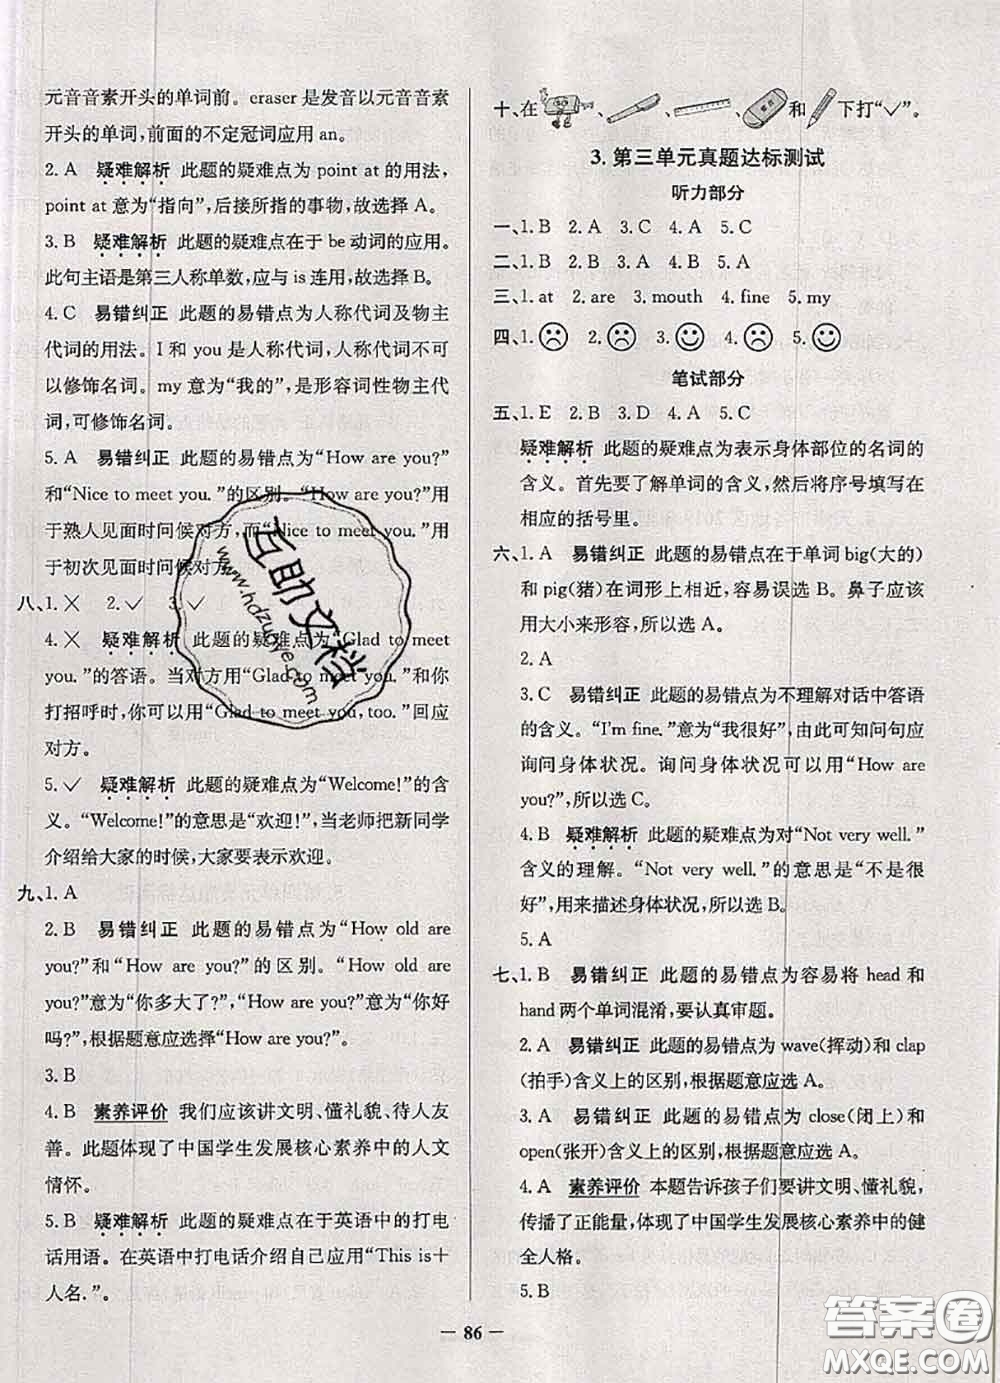 元音音素开头的单词前。eraser 是发音以元音音素
开头的单词,前面的不定冠词应用 an。
2. A 疑难解析 此题的疑难点为 point at 的用法,
point at 意为“指向”,后接所指的事物,故选择 A。
3. B 疑难解析 此题的疑难点在于 be 动词的应用。
此句主语是第三人称单数,应与 is 连用,故选择 B。
4. C 易错纠正 此题的易错点为人称代词及物主
代词的用法。I 和 you 是人称代词,人称代词不可
以修饰名词。my 意为“我的”,是形容词性物主代
词,可修饰名词。
5. A 易错纠正 此题的易错点为“How are you?”
和“Nice to meet you.”的区别。“How are you?”用
于熟人见面时问候对方,而“Nice to meet you.”用
于初次见面时问候对方。
八、1. ✗ 2. ✓ 3. ✓
4. ✗ 疑难解析 此题的疑难点为“Glad to meet
you.”的答语。当对方用“Glad to meet you.”和你
打招呼时,你可以用“Glad to meet you, too.”回应
对方。
5. ✓ 疑难解析 此题的疑难点为“Welcome!”的含
义。“Welcome!”的意思是“欢迎!”,当老师把新同学
介绍给大家的时候,大家要表示欢迎。
九、1. A
2. B 易错纠正 此题的易错点为“How old are
you?”和“How are you?”的区别。“How old are
you?”意为“你多大了?”,“How are you?”意为“你好
吗?”,根据题意应选择“How are you?”。
3. B
4. B 素养评价 我们应该讲文明、懂礼貌、待人友
善。此题体现了中国学生发展核心素养中的人文
情怀。
5. B 疑难解析 此题的疑难点在于英语中的打电
话用语。在英语中打电话介绍自己应用“This is+
人名.”。
十、在 、 、 、 和 下打“✓”。
3. 第三单元真题达标测试
听力部分
一、1. B 2. A 3. C 4. A 5. C
二、1. B 2. B 3. A 4. B 5. A
三、1. at 2. are 3. mouth 4. fine 5. my
四、1. 2. 3. 4. 5.
笔试部分
五、1. E 2. B 3. D 4. A 5. C
疑难解析 此题的疑难点为表示身体部位的名词的
含义。首先要了解单词的含义,然后将序号填写在
相应的括号里。
六、1. A 易错纠正 此题的易错点在于单词 big(大的)
和 pig(猪)在词形上相近,容易误选 B。鼻子应该
用大小来形容,所以选 A。
2. A
3. C 易错纠正 此题的易错点为不理解对话中答语
的含义。“I'm fine.”意为“我很好”,由此可知问句应
询问身体状况。询问身体状况可以用“How are
you?”,所以选 C。
4. B 疑难解析 此题的疑难点为对“Not very well.”
含义的理解。“Not very well.”的意思是“不是很
好”,用来描述身体状况,所以选 B。
5. A
七、1. B 易错纠正 此题的易错点为容易将 head 和
hand 两个单词混淆,要认真审题。
2. A 易错纠正 此题的易错点为 wave(挥动)和 clap
(拍手)含义上的区别,根据题意应选 A。
3. A 易错纠正 此题的易错点为 close(闭上)和
open(张开)含义上的区别,根据题意应选 A。
4. A 素养评价 本题告诉孩子们要讲文明、懂礼貌,
传播了正能量,体现了中国学生发展核心素养中的健
全人格。
5. B
— 86 —
互助文档
www.hdzuoye.com
答案圈
MXQE.COM